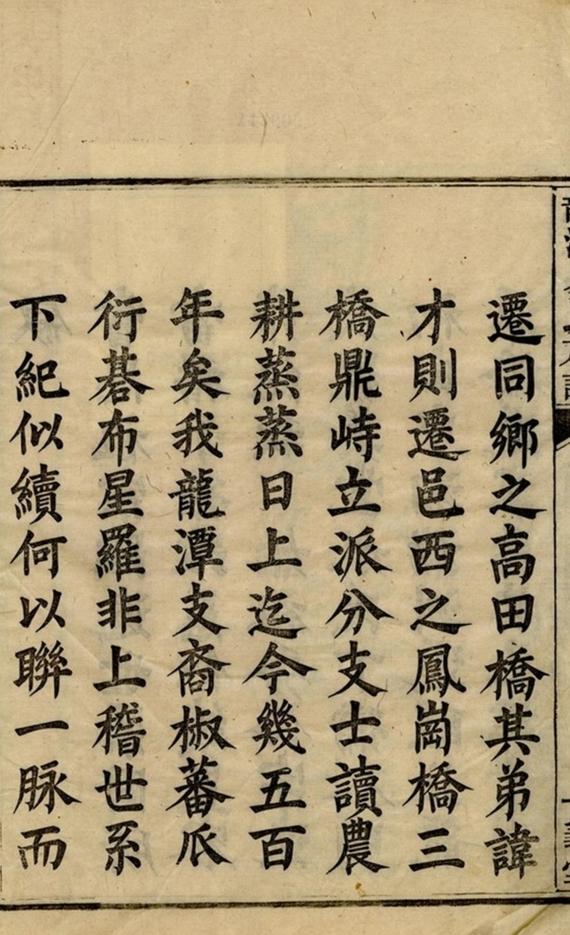 遷同鄉之高田橋其弟諱
才則遷邑西之鳳崗橋三
橋鼎峙立派分支士讀農
耕蒸蒸日上迄今幾五百
年矣我龍潭支裔椒蕃瓜
衍碁布星羅非上稽世系
下紀似續何以聯一脉而